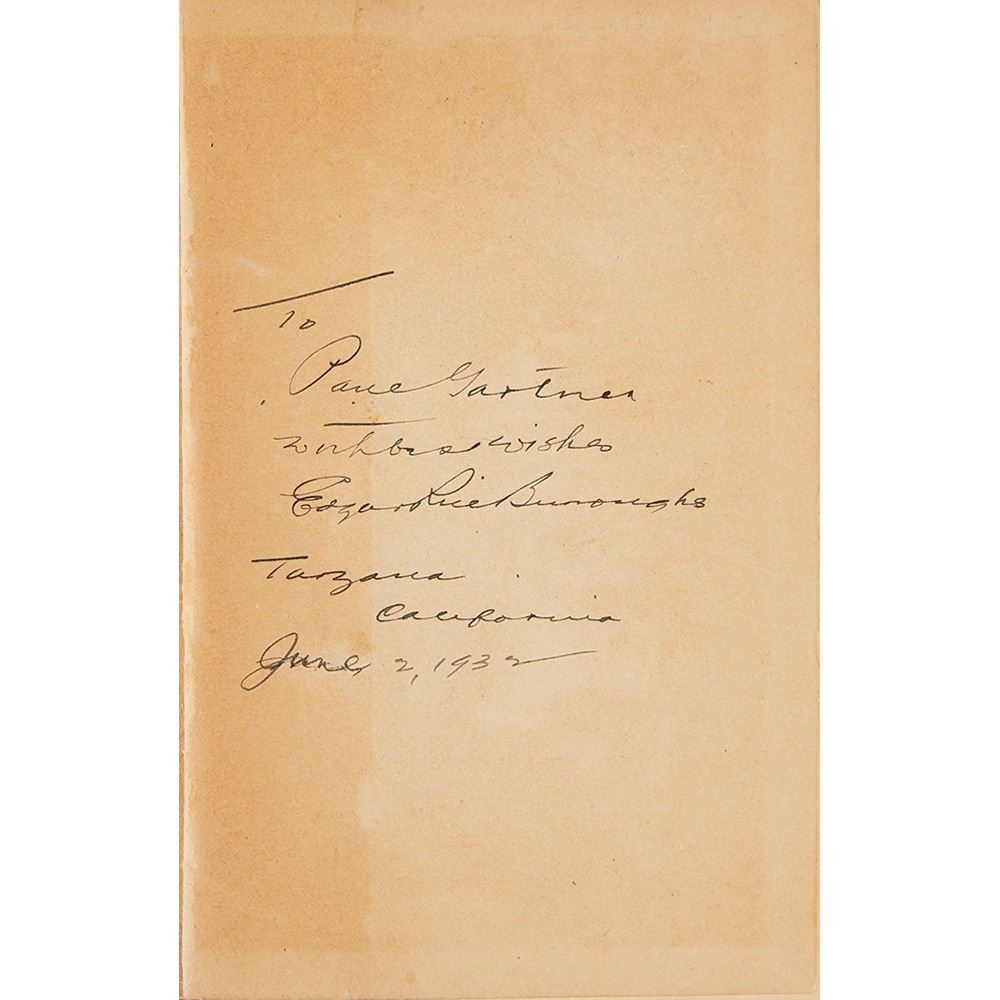 To
Paul Gartner
with best wishes
Edgar Rice Burroughs
Tarzana
California
June 2, 1932